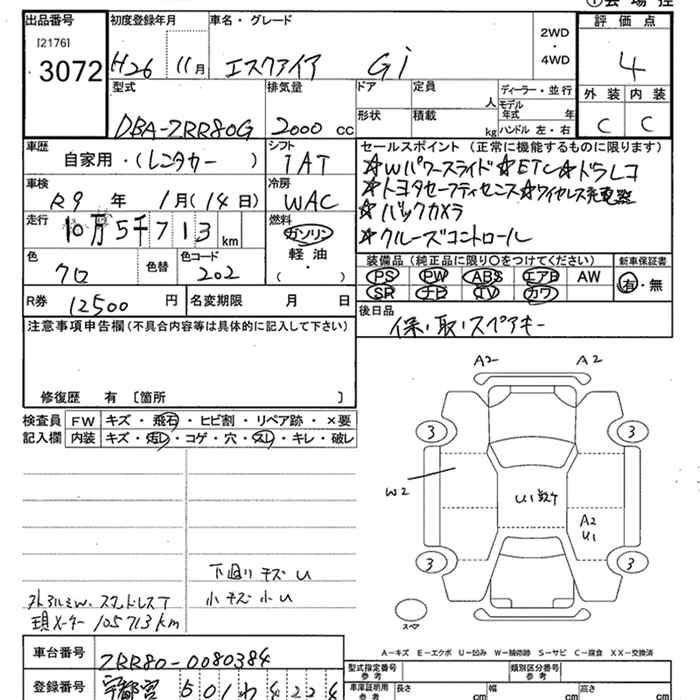 ①会場控
出品番号
[2176]
3072
初度登録年月
H26 11月
車名・グレード
エスクァイア Gi
2WD
・
4WD
評価点
4
外装 内装
C C
型式
DBA-ZRR80G
排気量
2000 cc
ドア 定員
人
形状 積載
kg
ディーラー・並行
モデル年式 年
ハンドル 左・右
車歴
自家用・(レンタカー )
シフト
IAT
セールスポイント (正常に機能するものに限ります)
☆Wパワースライド☆ETC☆ドラレコ
☆トヨタセーフティセンス☆ワイヤレス充電器
☆バックカメラ
☆クルーズコントロール
車検
R9 年 1月(14日)
冷房
WAC
走行
10万5千713 km
燃料
ガソリン
軽油
( )
色
クロ
色替
色コード
202
装備品 (純正品に限り○をつけてください)
PS PW ABS エアB AW
SR ナビ TV カワ
新車保証書
有・無
R券 12500 円
名変期限 月 日
後日品
保、取、スペアキー
注意事項申告欄 (不具合内容等は具体的に記入して下さい)
修復歴 有 〔箇所 〕
検査員
記入欄
FW キズ・飛石・ヒビ割・リペア跡・×要
内装 キズ・汚レ・コゲ・穴・スレ・キレ・破レ
A2 A2
3 3
W2
U1数ケ
A2
U1
3 3
スペア
下廻りキズU
小キズ小U
外アルミW、スタッドレスT
現メーター 105713km
A－キズ E－エクボ U－凹み W－補修跡 S－サビ C－腐食 XX－交換済
車台番号 ZRR80-0080384
登録番号 宇都宮 501 わ 4224
型式指定番号
参考
類別区分番号
参考
車庫証明用
参考
長さ cm
幅 cm
高さ cm